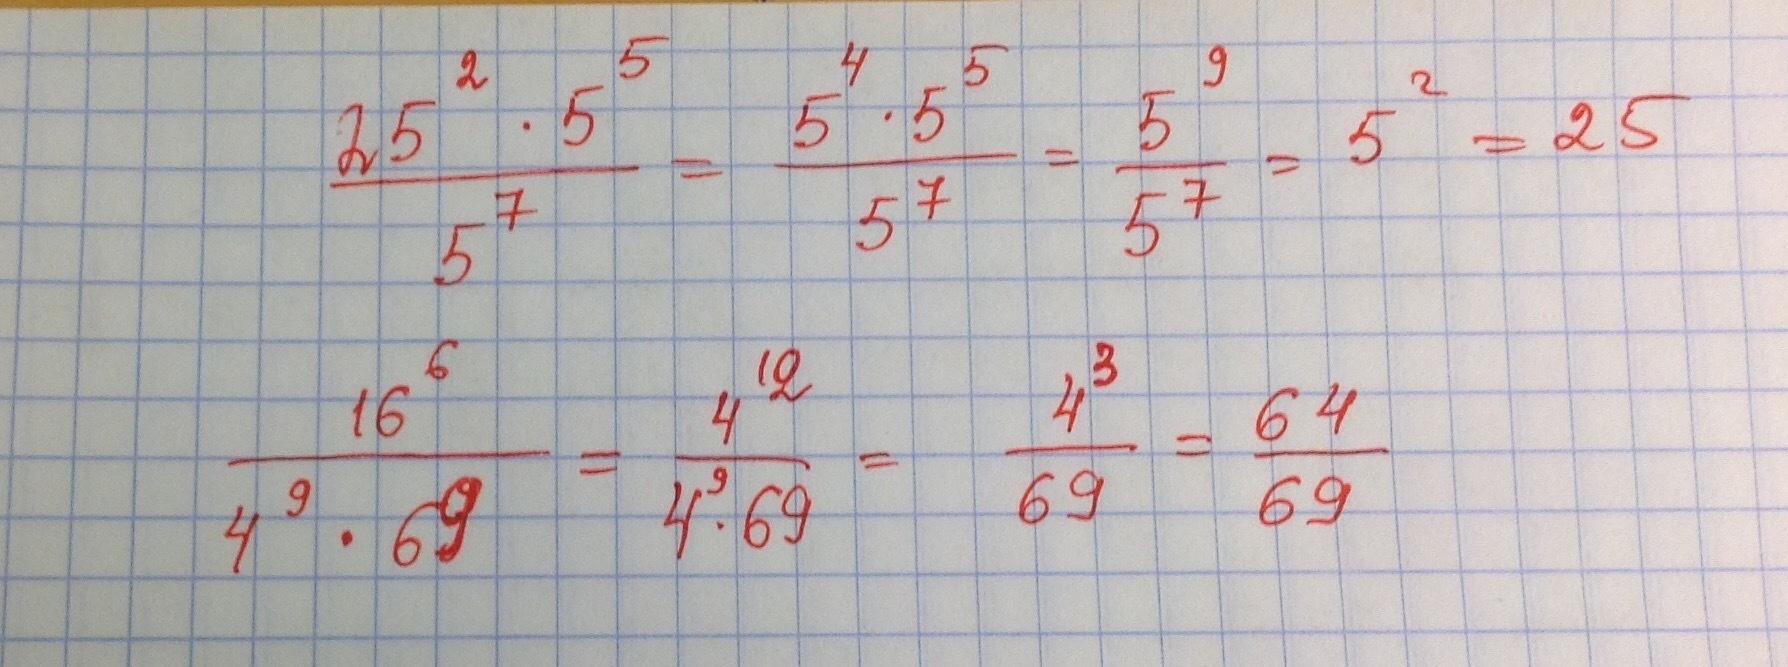 25² · 5⁵ / 5⁷ = 5⁴ · 5⁵ / 5⁷ = 5⁹ / 5⁷ = 5² = 25
16⁶ / 4⁹ · 69 = 4¹² / 4⁹ · 69 = 4³ / 69 = 64 / 69